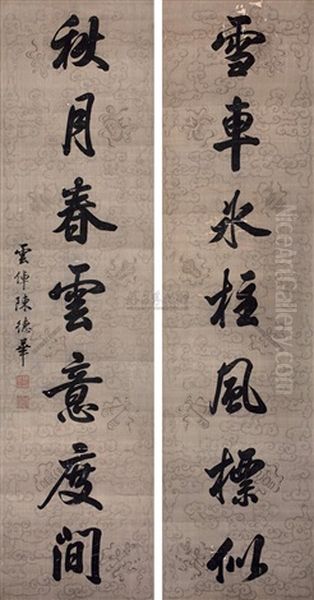 雪車冰柱風標似
秋月春雲意度閒
雲倬陳德華